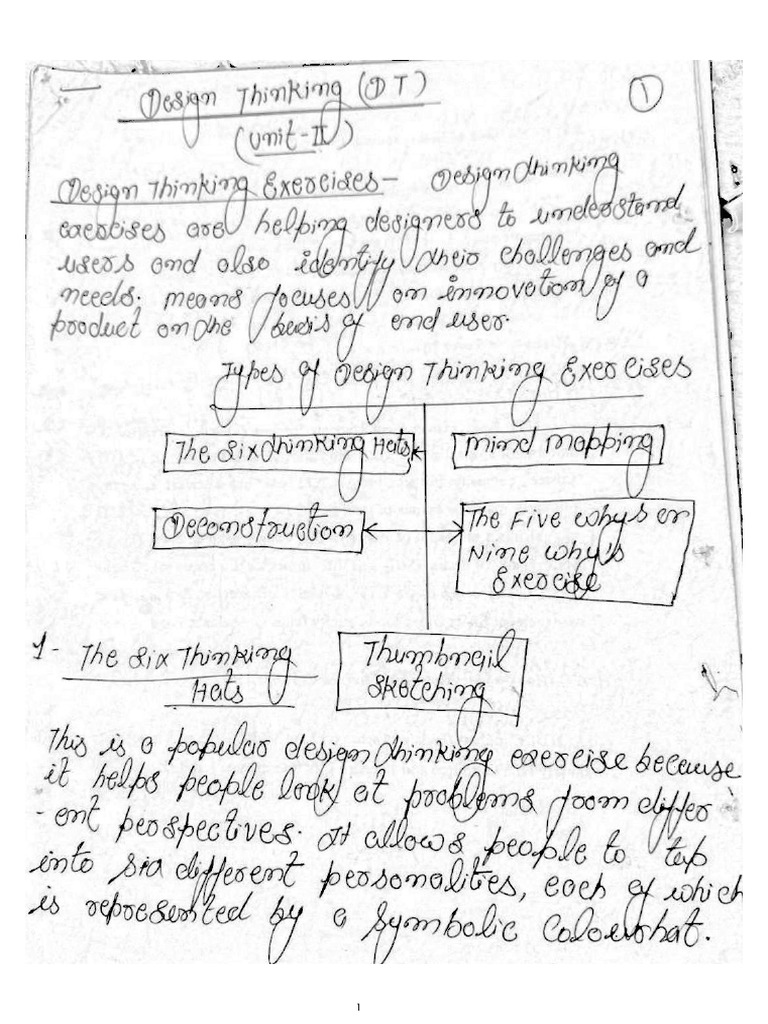 Design Thinking (DT)
1
(Unit-II)
Design Thinking Exercises- Design thinking
exercises are helping designers to understand
users and also identify their challenges and
needs. means focuses on innovation of a
product on the basis of end user.
Types of Design Thinking Exercises
The Six thinking Hats
Mind Mapping
Deconstruction
The Five Why's or
Nine Why's
Exercise
Thumbnail
Sketching
1- The Six Thinking
Hats
This is a popular design thinking exercise because
it helps people look at problems from differ
-ent perspectives. It allows people to tap
into six different personalities, each of which
is represented by a symbolic colour hat.
1